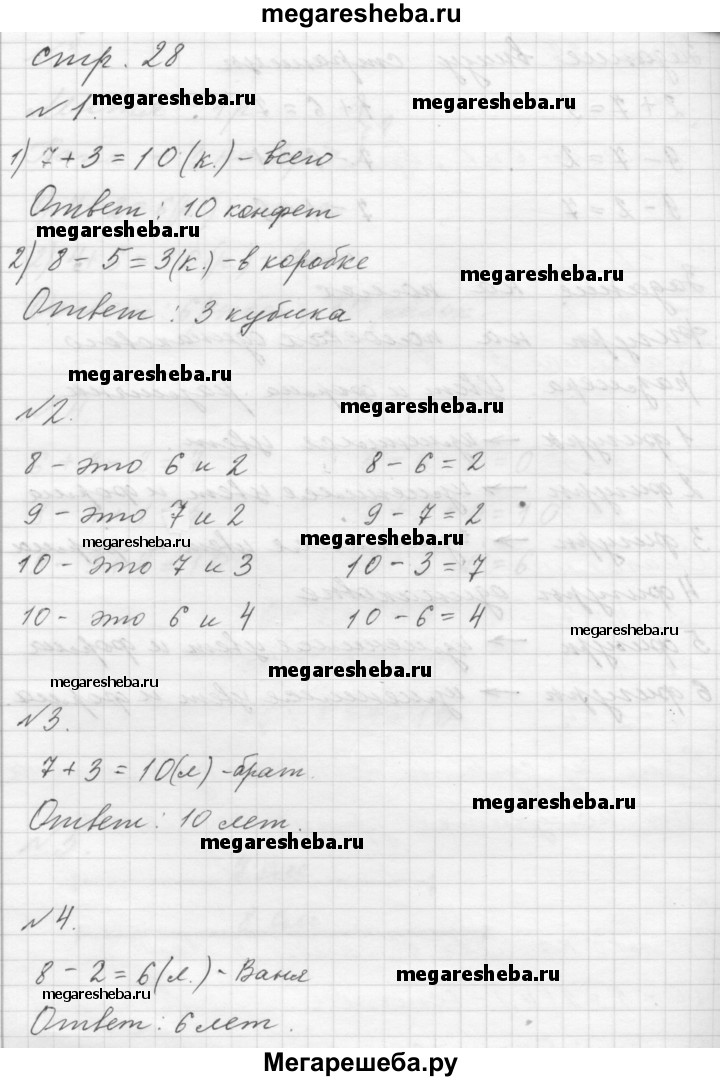 megaresheba.ru
стр. 28
№1.
megaresheba.ru
megaresheba.ru
1) 7+3=10(к.)-всего
Ответ: 10 конфет
megaresheba.ru
2) 8-5=3(к.)-в коробке
megaresheba.ru
Ответ: 3 кубика
megaresheba.ru
№2.
megaresheba.ru
8-это 6 и 2 8-6=2
9-это 7 и 2 9-7=2
megaresheba.ru
megaresheba.ru
10-это 7 и 3 10-3=7
10-это 6 и 4 10-6=4
megaresheba.ru
megaresheba.ru
megaresheba.ru
№3.
7+3=10(л)-брат.
megaresheba.ru
Ответ: 10 лет.
megaresheba.ru
№4.
8-2=6(л.)-Ваня
megaresheba.ru
megaresheba.ru
Ответ: 6 лет.
Мегарешеба.ру